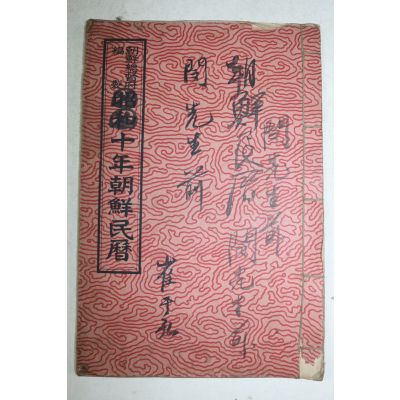 閔先生前
朝鮮民曆 閔先生前
閔先生前
崔
朝鮮總督府
編製
昭和十年朝鮮民曆